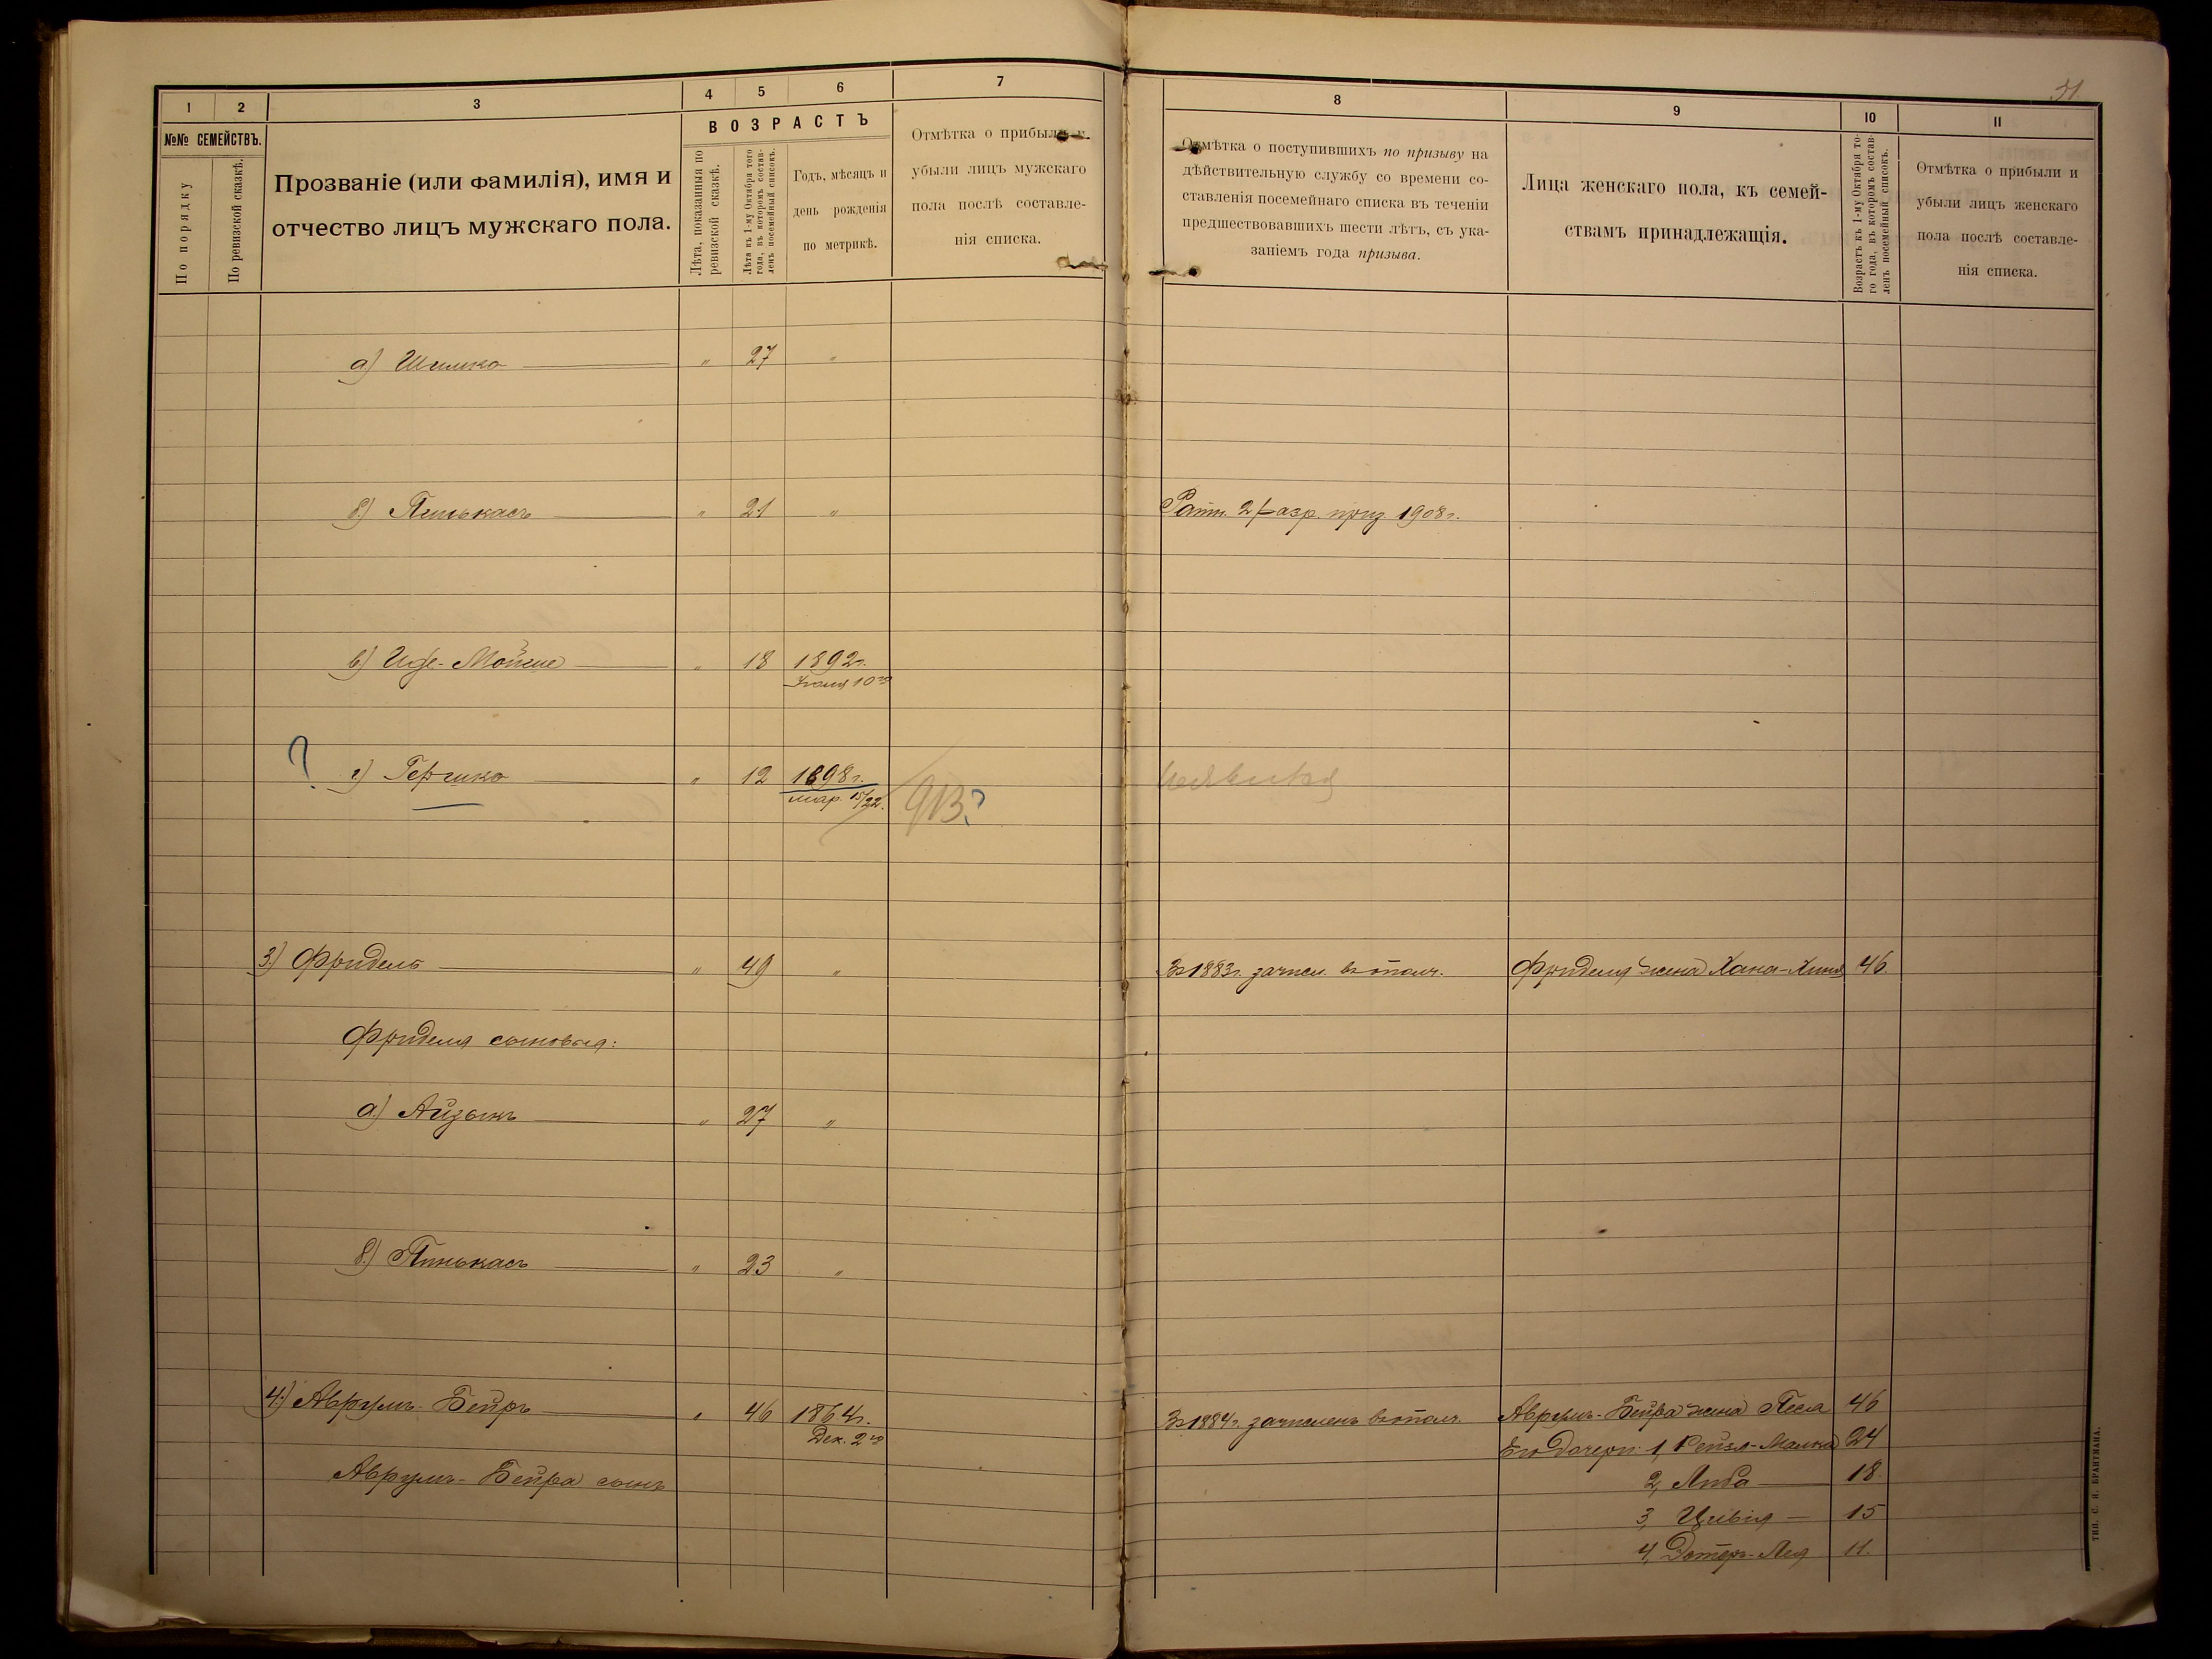 51
1 2 3 4 5 6 7 8 9 10 11
№№ СЕМЕЙСТВЪ.
По порядку
По ревизской сказкѣ.
Прозваніе (или фамилія), имя и
отчество лицъ мужскаго пола.
ВОЗРАСТЪ
Лѣта, показанныя по
ревизской сказкѣ.
Лѣта къ 1-му Октября того
года, въ которомъ состав-
ленъ посемейный списокъ.
Годъ, мѣсяцъ и
день рожденія
по метрикѣ.
Отмѣтка о прибыли и
убыли лицъ мужскаго
пола послѣ составле-
нія списка.
Отмѣтка о поступившихъ по призыву на
дѣйствительную службу со времени со-
ставленія посемейнаго списка въ теченіи
предшествовавшихъ шести лѣтъ, съ ука-
заніемъ года призыва.
Лица женскаго пола, къ семей-
ствамъ принадлежащія.
Возрастъ къ 1-му Октября то-
го года, въ которомъ состав-
ленъ посемейный списокъ.
Отмѣтка о прибыли и
убыли лицъ женскаго
пола послѣ составле-
нія списка.
а) Шлимко — " 27 "
б) Пинькасъ — " 21 " Ратн. 2 разр. приз 1908 г.
в) Иде-Мойше — " 18 1892 г.
Іюля 10го
? г) Гершко — " 12 1898 г.
мар. 15/22. 913?
3.) Фридель — " 49 " Въ 1883 г. зачисл. въ ополч. Фриделя жена Хана-Хиня 46
Фриделя сыновья:
а.) Айзыкъ — " 27 "
б.) Пинькасъ — " 23 "
4.) Аврумъ-Бейръ — " 46 1864 г. Въ 1884 г. зачисленъ въ ополч. Аврумъ-Бейра жена Песя 46
Дек. 2го Его дочери: 1, Рейзя-Малка 24
Аврумъ-Бейра сынъ 2, Либа — 18.
3, Цивія — 15
4, Эстеръ-Лея 11.
ТИП. С. Н. БРАНТМАНА.